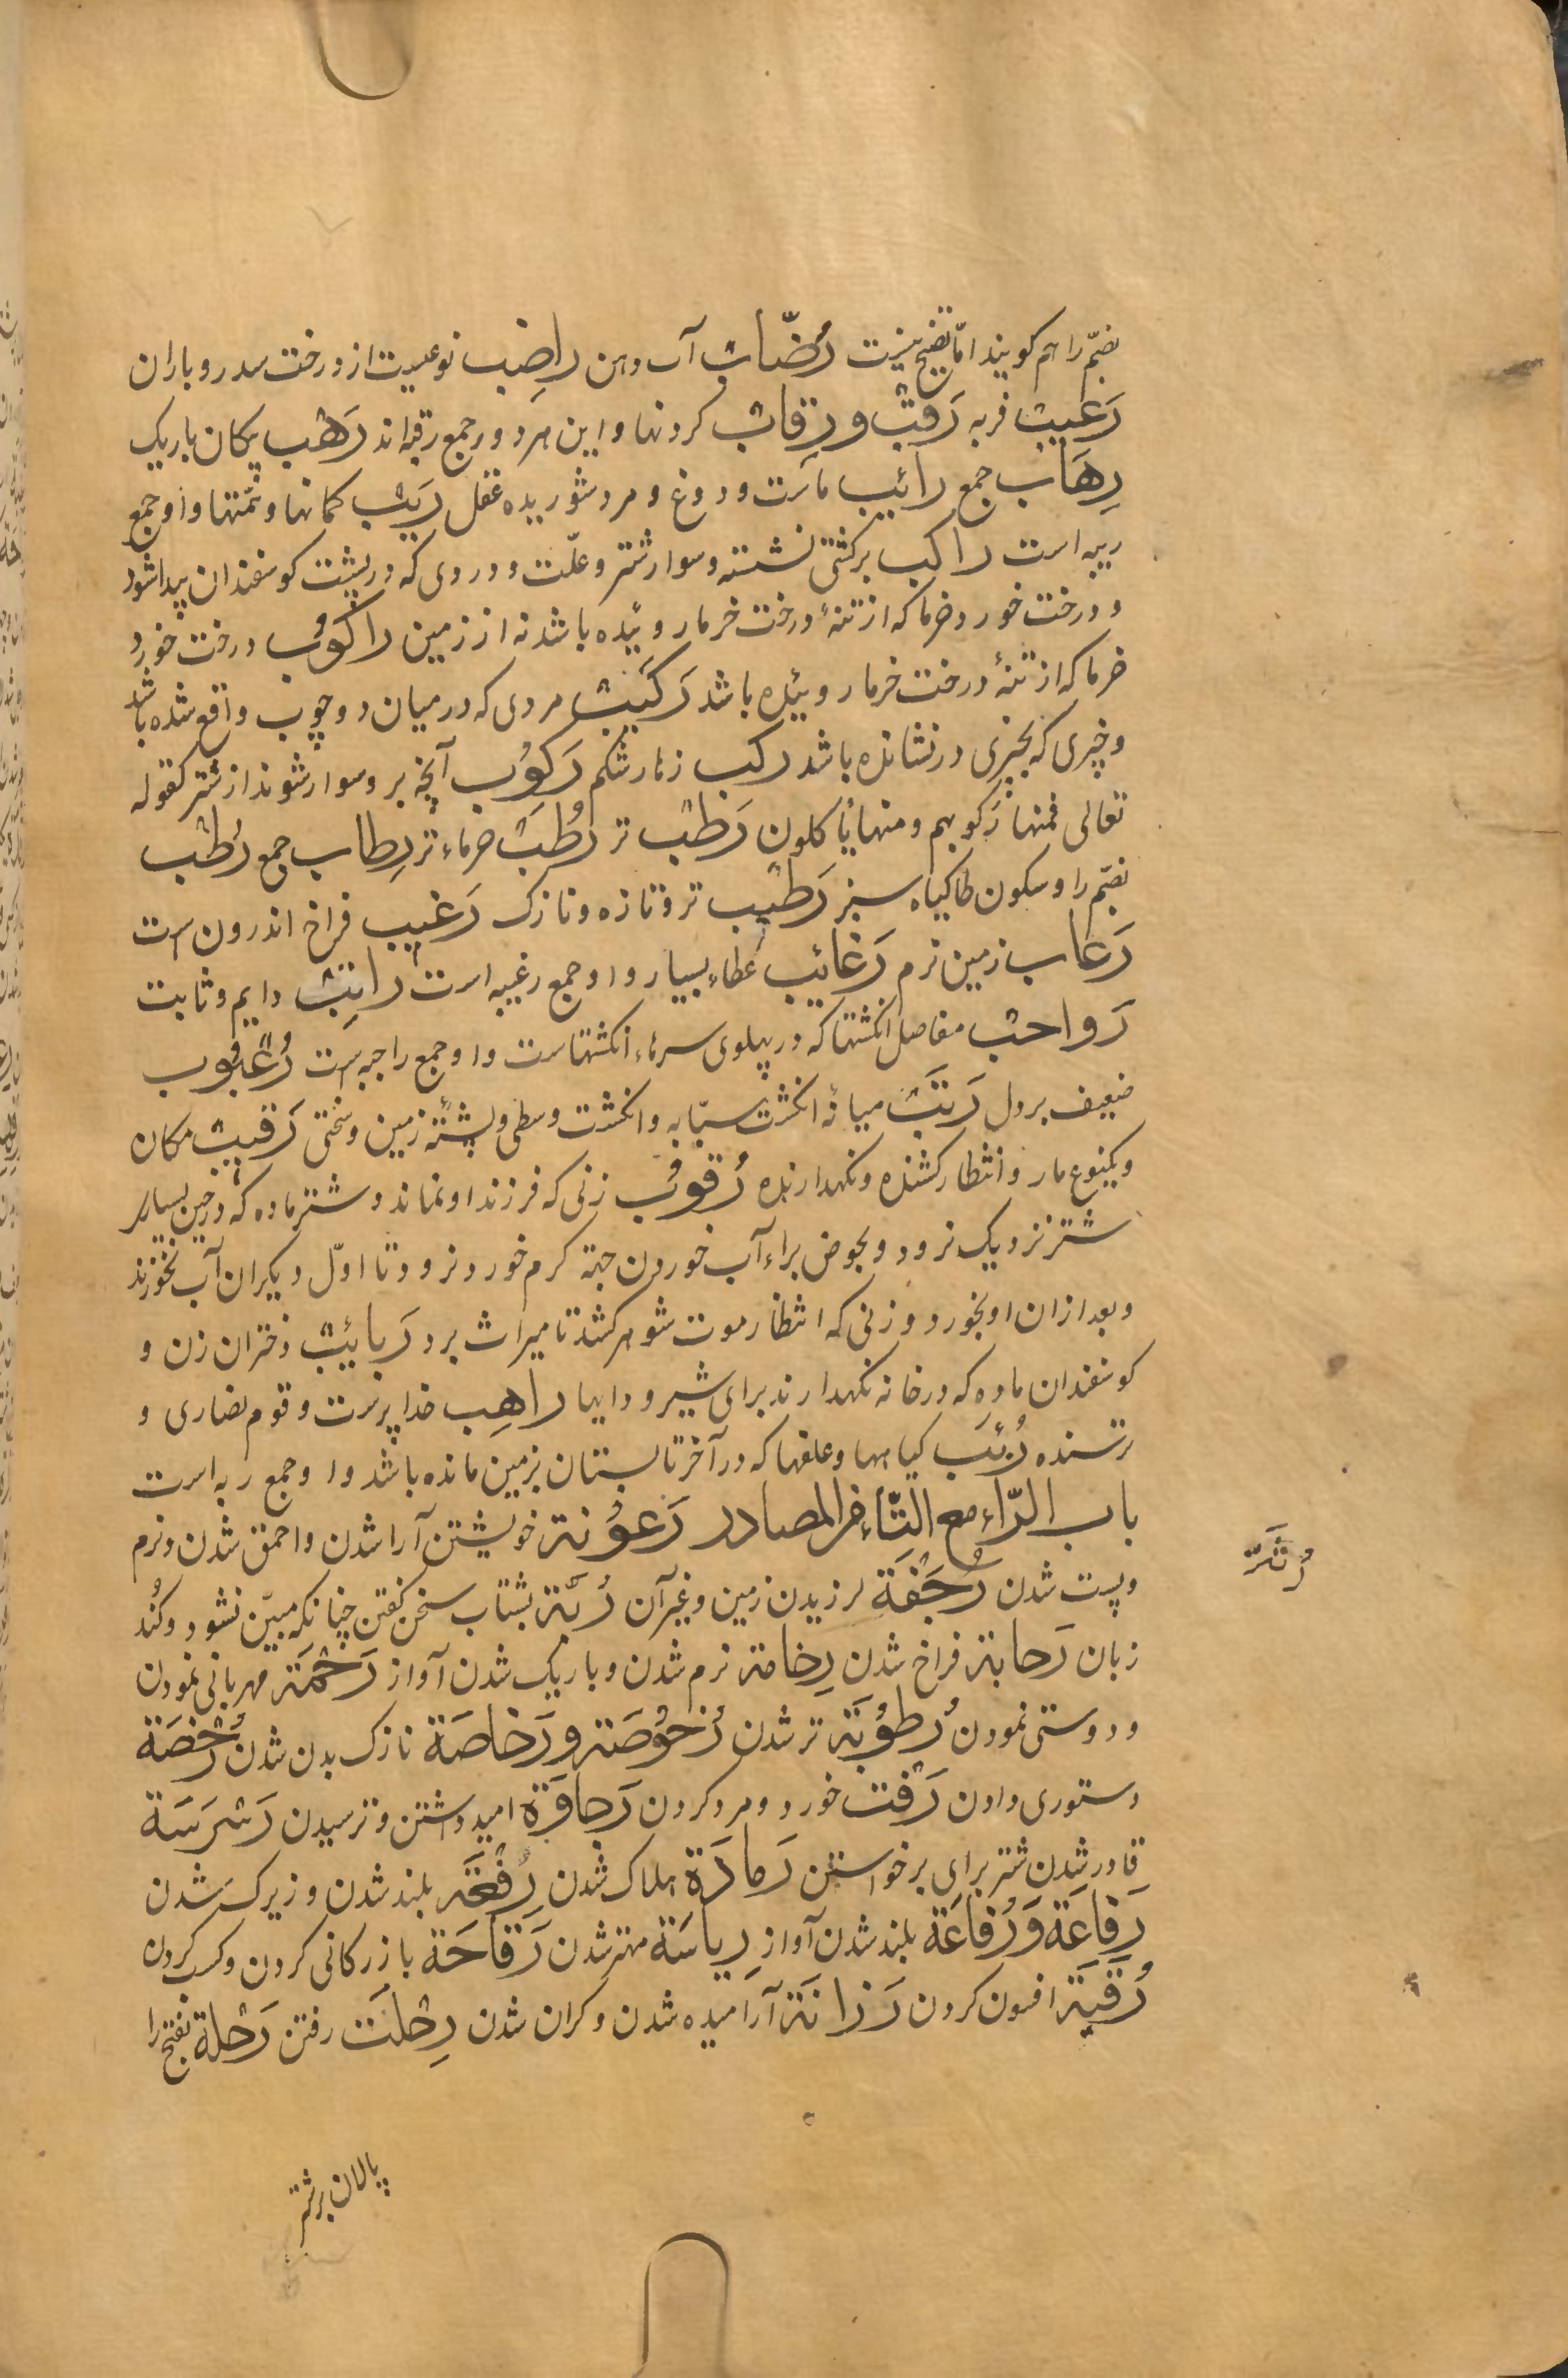 بضمّ را هم کویند امّا فصیح نیست رُضَّاب آب دهن راضِب نوعیست از درخت سدر و باران
رَعیب فربه رَقَب و رِقاب کردنها و این هر دو جمع رقبه‌اند رَهْب پیکان باریک
رِهَاب جمع رائیب ماست و دوغ و مرد شوریده عقل رِیَب کمانها و تهمتها و او جمع
ریبه است راکب برکشتی نشسته و سوار شتر و علّت و دردی که در پشت کوسفندان پیدا شود
و درخت خورد خرما که از تنهٔ درخت خرما روئیده باشد نه از زمین راکوُب درخت خورد
خرما که از تنهٔ درخت خرما روئیده باشد رَکیب مردی که درمیان دو چوب واقع شده باشد
و چیزی که بچیزی در نشانده باشد رکب زهار شکم رَکوُب آنچه برو سوار شوند از شتر کقوله
تعالی فمنها رَکوبهم و منها یٔاکلون رَطْب تر رُطَبْ خرماء تر رِطاب جمع رُطْب
بضمّ را و سکون طا کیاه سبز رَطیب تر و تازه و نازک رَغیب فراخ اندرون است
رَعاب زمین نرم رَغائیب عطاء بسیار و او جمع رغیبه است راتِب دایم و ثابت
رَواجب مفاصل انکشتها که در پهلوی سرهاء انکشتهاست و او جمع راجبه است رُعْبُوب
ضعیف بردل رَتَب میانهٔ انکشت سبّابه و انکشت وسطی و پشتهٔ زمین و سختی رَقیب مکان
و یکنوع مار و انتظار کشنده و نکهدارنده رَقوُب زنی که فرزند او نماند و شتر ماده که در حین بسیار
شتر نزدیک نرود و بحوض براء آب خوردن جهة کرم خورد نرود تا اوّل دیکران آب نخورند
و بعد ازان او بخورد و زنی که انتظار موت شوهر کشد تا میراث برد رَبائیب دختران زن و
کوسفندان ماده که در خانه نکهدارند برای شیر و دایها راهِب خدا پرست و قوم نصاری و
ترسنده رُبَب کیاهها و علفها که در آخر تابستان بزمین مانده باشد و او جمع ربه است
باب الرّاء مع التّاء فی المصادر رَعوُنة خویشتن آرا شدن و احمق شدن و نرم
و پست شدن رُجْفَة لرزیدن زمین و غیر آن رُتّة بشتاب سخن کفتن چنانکه مبیّن نشود و کُند
زبان رَحابة فراخ شدن رِخامة نرم شدن و باریک شدن آواز رَحْمَة مهربانی نمودن
و دوستی نمودن رُطوُبَة تر شدن رُخوُصَة و رَخاصَة نازک بدن شدن رُخْصَة
دستوری دادن رَفْت خورد و مرد کردن رَجاوَة امید داشتن و ترسیدن رَشْرَسَة
قادر شدن شتر برای برخواستن رَمادَة هلاک شدن رِفْعَة بلند شدن و زیرک شدن
رَفاعَة وَ رُفاعَة بلند شدن آواز رِیاسَة مهتر شدن رَقاحَة بازرکانی کردن و کسب کردن
رُقْیَة افسون کردن رَزانَة آرامیده شدن و کران شدن رِحْلَت رفتن رَحْلة بفتح را
رُتَّة
پالان بر شتر